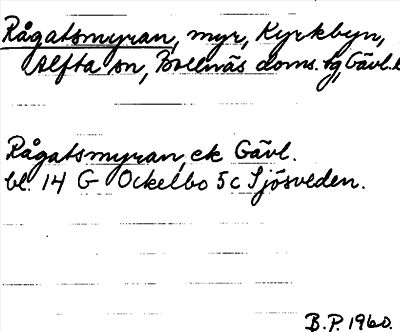 Rågatsmyran, myr, Kyrkbyn,
Alfta sn, Bollnäs doms. hg, Gävl. l
Rågatsmyran, ek Gävl.
bl. 14 G Ockelbo 5c Sjösveden.
B.P. 1960.